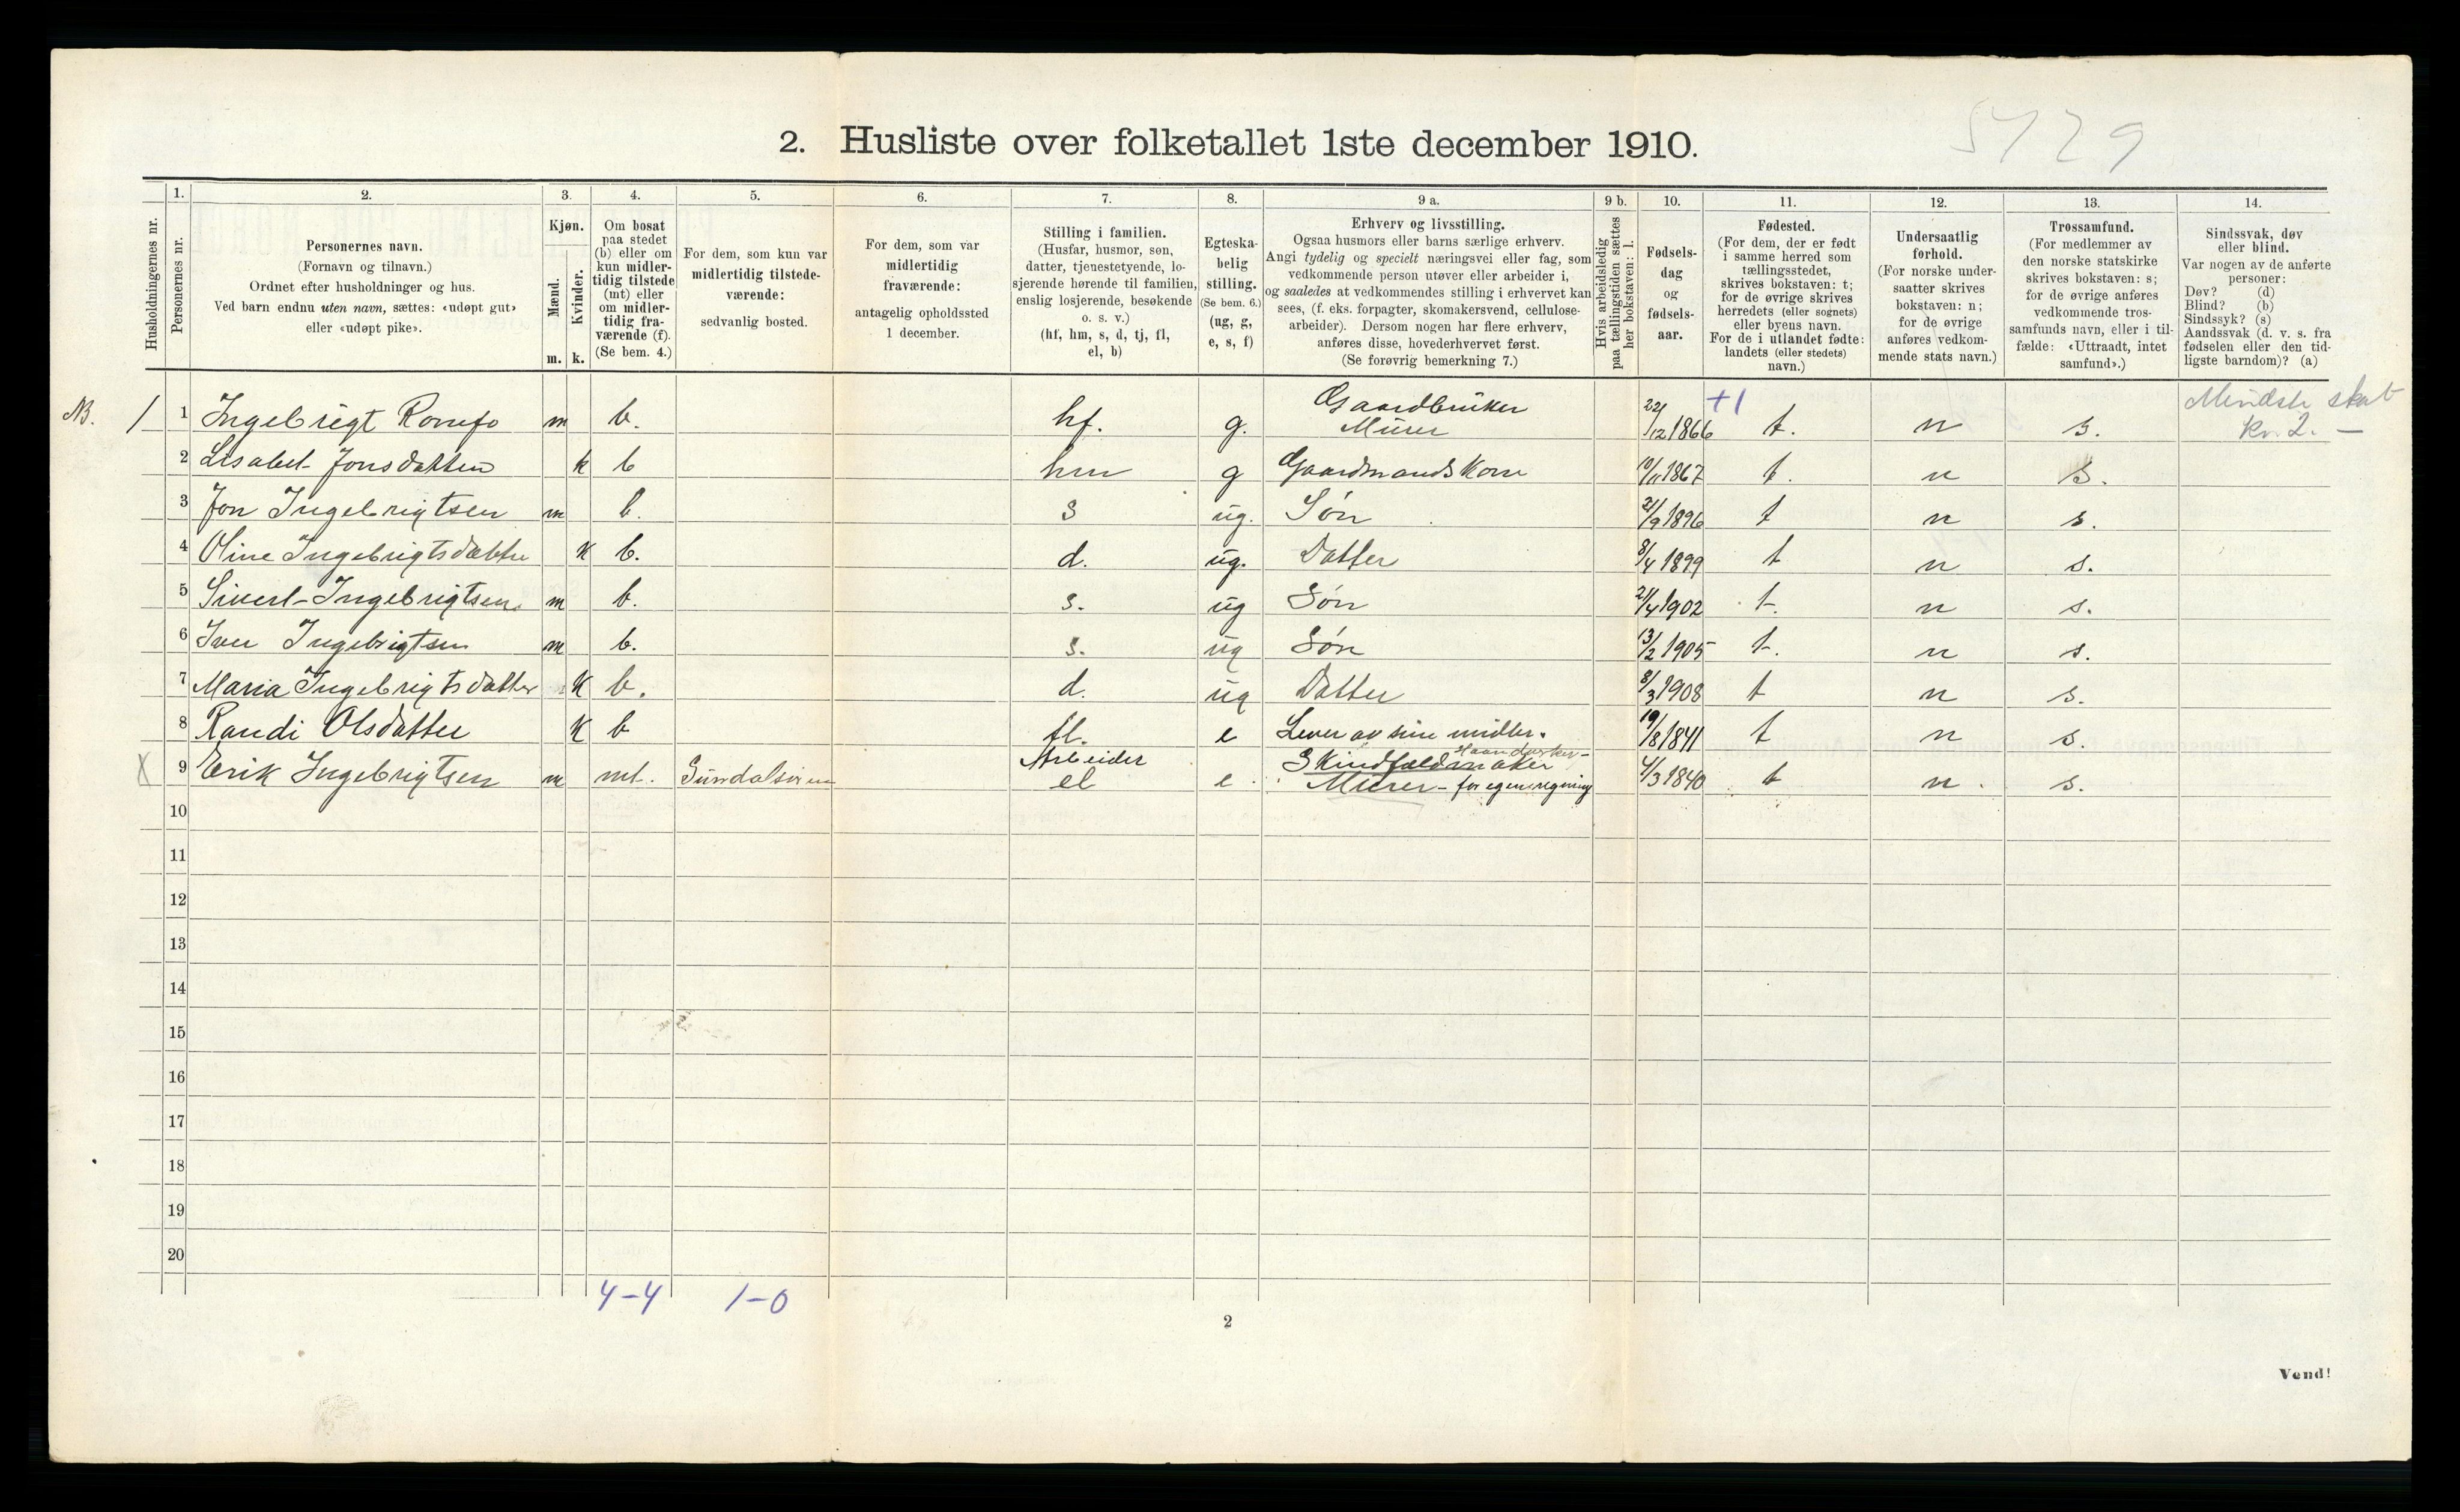 5729
2. Husliste over folketallet 1ste december 1910.
Husholdningernes nr.
1. Personernes nr.
2. Personernes navn. (Fornavn og tilnavn.) Ordnet efter husholdninger og hus. Ved barn endnu uten navn, sættes: «udøpt gut» eller «udøpt pike».
3. Kjøn. Mænd. m. Kvinder. k.
4. Om bosat paa stedet (b) eller om kun midlertidig tilstede (mt) eller om midlertidig fraværende (f). (Se bem. 4.)
5. For dem, som kun var midlertidig tilstedeværende: sedvanlig bosted.
6. For dem, som var midlertidig fraværende: antagelig opholdssted 1 december.
7. Stilling i familien. (Husfar, husmor, søn, datter, tjenestetyende, losjerende hørende til familien, enslig losjerende, besøkende o. s. v.) (hf, hm, s, d, tj, fl, el, b)
8. Egteskabelig stilling. (Se bem. 6.) (ug, g, e, s, f)
9 a. Erhverv og livsstilling. Ogsaa husmors eller barns særlige erhverv. Angi tydelig og specielt næringsvei eller fag, som vedkommende person utøver eller arbeider i, og saaledes at vedkommendes stilling i erhvervet kan sees, (f. eks. forpagter, skomakersvend, cellulosearbeider). Dersom nogen har flere erhverv, anføres disse, hovederhvervet først. (Se forøvrig bemerkning 7.)
9 b. Hvis arbeidsledig paa tællingstiden sættes her bokstaven: l.
10. Fødselsdag og fødselsaar.
11. Fødested. (For dem, der er født i samme herred som tællingsstedet, skrives bokstaven: t; for de øvrige skrives herredets (eller sognets) eller byens navn. For de i utlandet fødte: landets (eller stedets) navn.)
12. Undersaatlig forhold. (For norske undersaatter skrives bokstaven: n; for de øvrige anføres vedkommende stats navn.)
13. Trossamfund. (For medlemmer av den norske statskirke skrives bokstaven: s; for de øvrige anføres vedkommende trossamfunds navn, eller i tilfælde: «Uttraadt, intet samfund».)
14. Sindssvak, døv eller blind. Var nogen av de anførte personer: Døv? (d) Blind? (b) Sindssyk? (s) Aandssvak (d. v. s. fra fødselen eller den tidligste barndom)? (a)
NB. / 1 Ingebrigt Romfo m b. hf. g. Gaardbruker Murer 22/12 1866 +1 t. n s. Mindste skat Kr. 2. —
2 Lisabet Jonsdatter k b hm g Gaardmandskone 10/11 1867 t. n s.
3 Jon Ingebrigtsen m b. s ug. Søn 21/9 1896 t n s.
4 Oline Ingebrigtsdatter k b. d. ug. Datter 8/4 1899 t n s.
5 Sivert Ingebrigtsen m b. s. ug Søn 21/4 1902 t. n s.
6 Iver Ingebrigtsen m b. s. ug Søn 13/2 1905 t. n s.
7 Maria Ingebrigtsdatter k b. d. ug Datter 8/3 1908 t n s.
8 Randi Olsdatter k b fl. e Lever av sine midler. 19/8 1841 t n s.
X 9 Erik Ingebrigtsen m mt. Sundalsøren Arbeider el e Skindfældmaker Haandverker- Murer - for egen regning 4/3 1840 t n. s.
10
11
12
13
14
15
16
17
18
19
20
4-4 1-0
2
Vend!